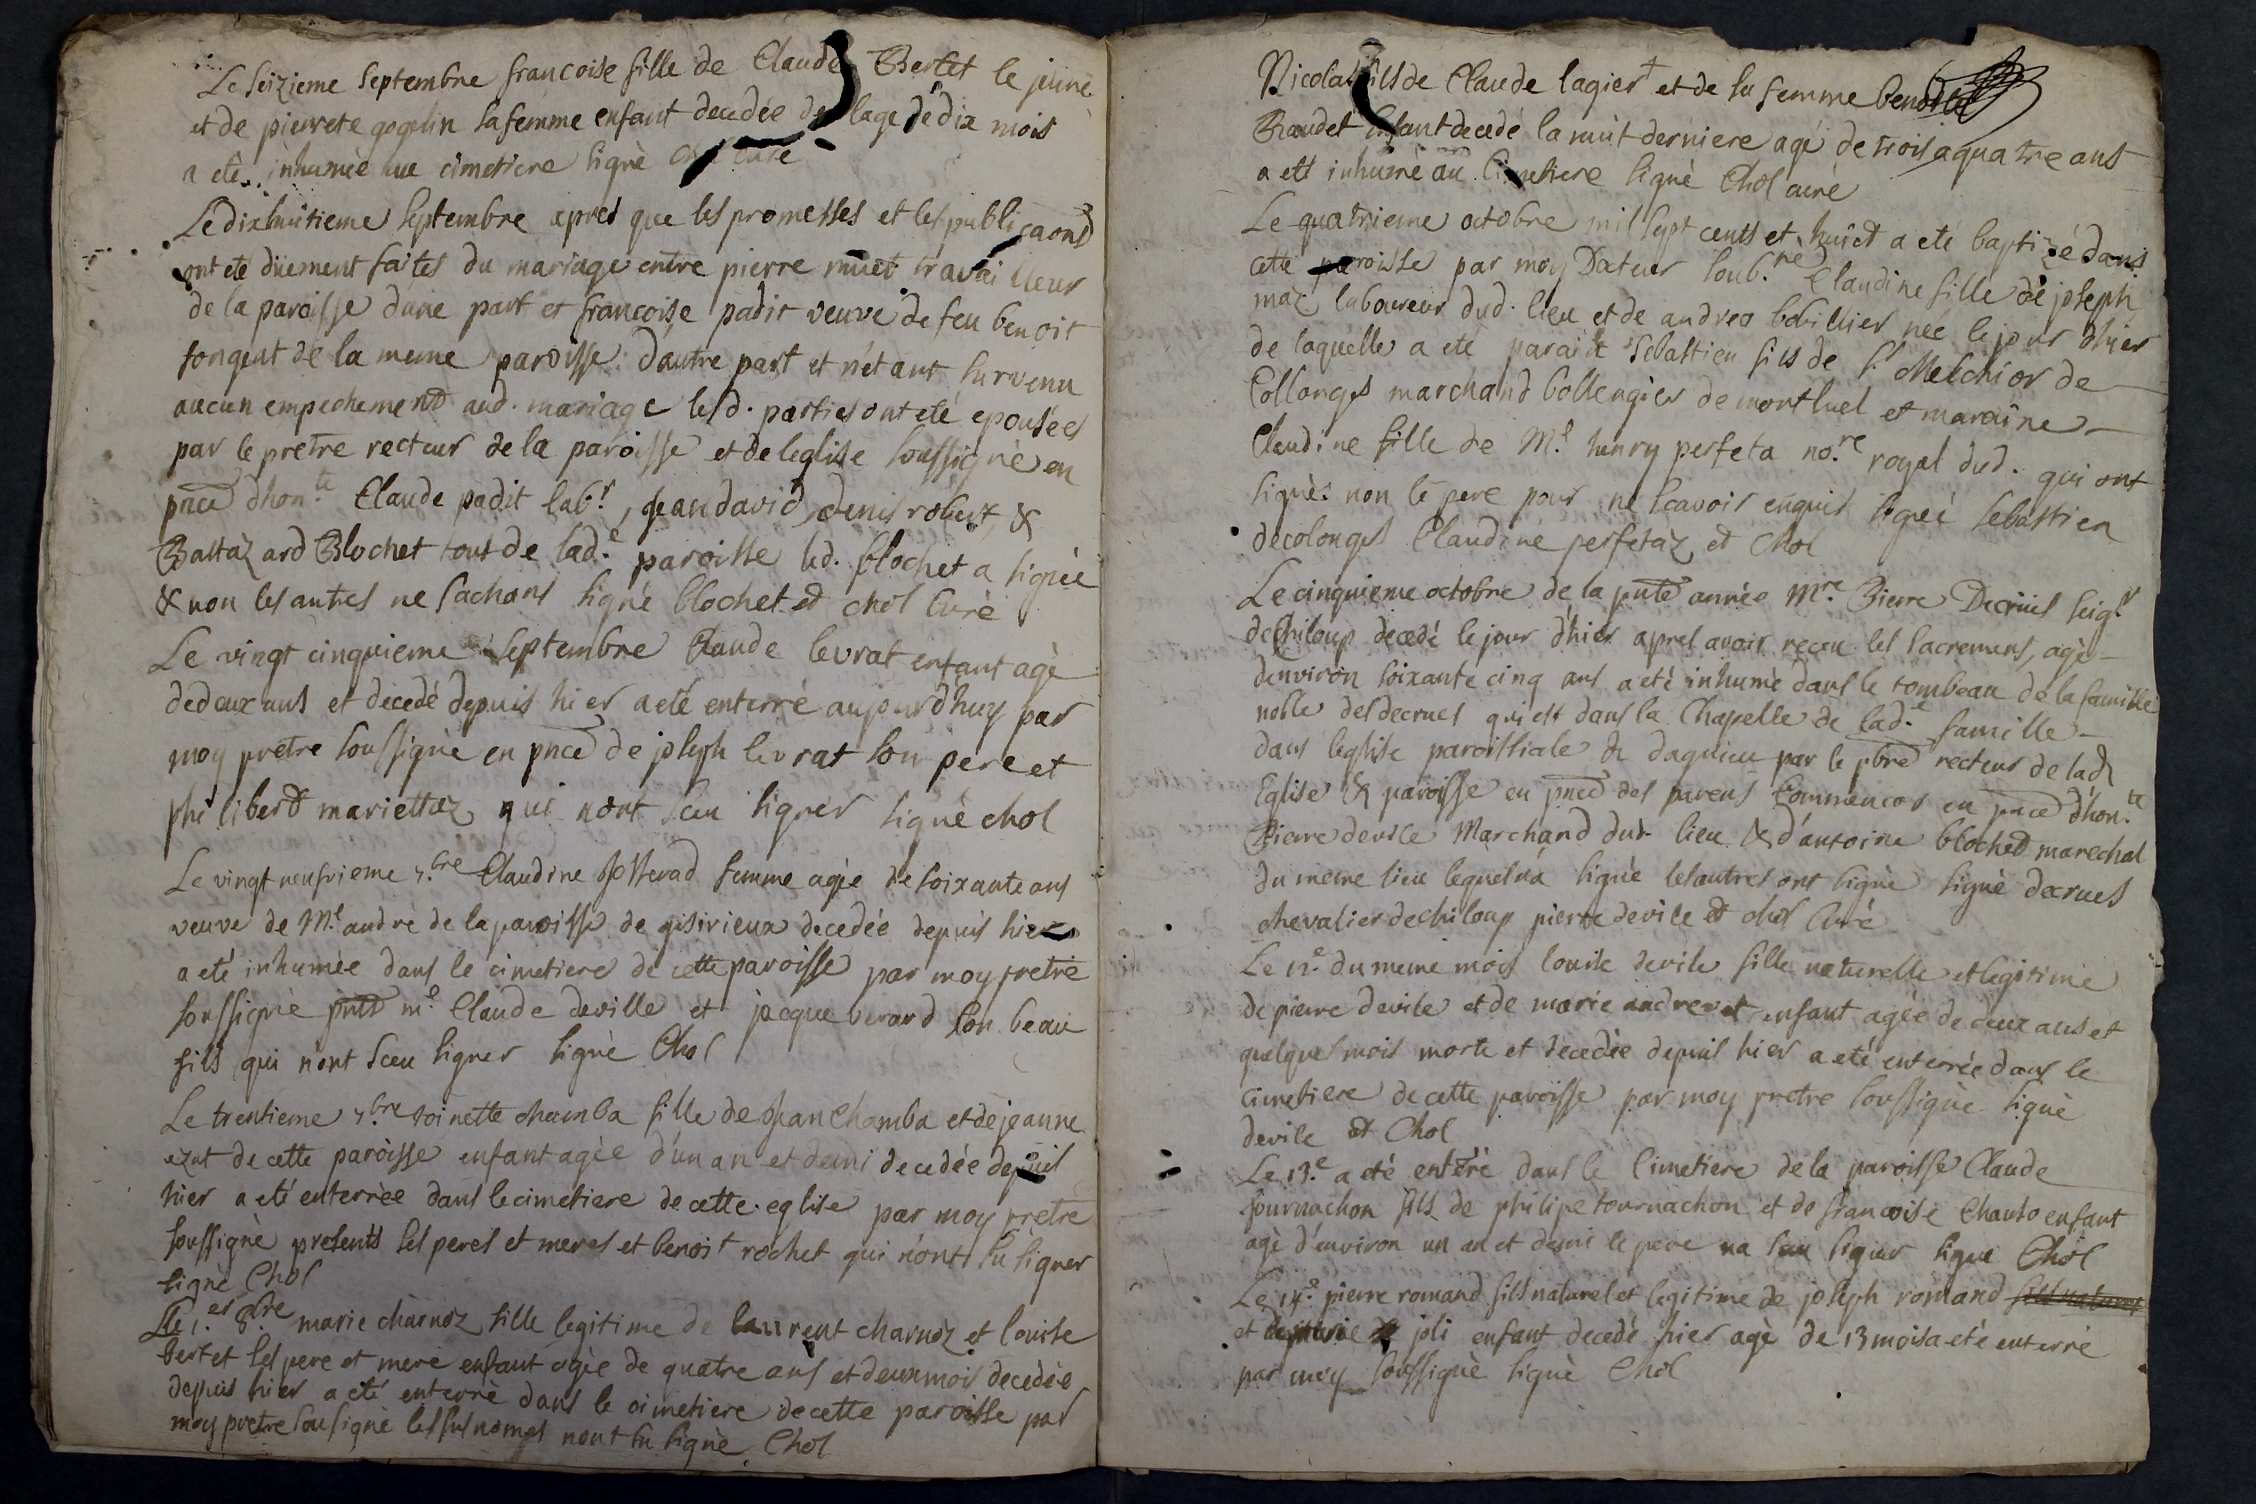 Le seizieme septembre francoise fille de Claude Bertet le jeune
et de pierrete gogelin sa femme enfant decedée de lage de dix mois
a eté inhumée au cimetiere signé chol curé
Le dixhuitieme septembre apres que les promesses et les publicaons
ont eté düement faites du mariage entre pierre muet travailleur
de la paroisse dune part et francoise padit veuve de feu benoit
songeut de la meme paroisse d'autre part et n'étant survenu
aucun empechement aud. mariage lesd. parties ont eté epousées
par le pretre recteur de la paroisse et de leglise soussigné en
pnce dhon.te Claude padit lab.r, Jean david, denis robert, &
Baltazard Blochet tous de lad.e paroisse led. blochet a signée
& non les autres ne sachans signé blochet et chol curé
Le vingt cinquieme septembre Claude levrat enfant agé
de deux ans et decedé depuis hier a eté enterré aujourdhuy par
moy pretre soussigné en pnce de joseph levrat son pere et
philibert mariettaz qui nont sceu signer signé chol
Le vingt neufvieme 7.bre Claudine femme agée de soixante ans
veuve de M.e andré de la paroisse de gisirieux decedée depuis hier
a eté inhumée dans le cimetiere de cette paroisse par moy pretre
soussigné pnts m.e Claude deville et jacque verard son beau
fils qui n'ont sceu signer signé Chol
Le trentieme 7.bre toinette chamba fille de Jean Chamba et de jeanne
ezut de cette paroisse enfant agée d'un an et demi decedée depuis
hier a eté enterrée dans le cimetiere de cette eglise par moy pretre
soussigné presents ses peres et meres et benoist rochet qui n'ont su signer
signé Chol
Le 1.er 8.bre marie charnoz fille legitime de laurent charnoz et louise
bertet ses pere et mere enfant agée de quatre ans et deux mois decedée
depuis hier a eté enterré dans le cimetiere de cette paroisse par
moy pretre sousigné les susnomés nont su signé Chol
Nicolas fils de Claude lagier et de sa femme benoite
Baudet enfant decedé la nuit derniere agé de trois a quatre ans
a eté inhumé au cimetiere signé Chol curé
Le quatrieme octobre mil sept cents et huict a eté baptizé dans
cette paroisse par moy Recteur soub.né Claudine fille de joseph
maz laboureur dud. lieu et de andrea bovillier née le jour d'hier
de laquelle a eté parain sebastien fils de s.r Melchior de
Collonges marchand bollengier de montluel et maraine
Claudine fille de M.e henry perfeta no.re royal dud. qui ont
signé non le pere pour ne scavoir enquis signé sebastien
decolonges Claudine perfetaz et Chol
Le cinquieme octobre de la pnte année M.re Pierre Decrües seig.r
de Chiloup decedé le jour d'hier apres avoir receu les sacremens, agé
denviron soixante cinq ans a eté inhumé dans le tombeau de la famille
noble des decrues qui est dans la Chapelle de lad.e famille
dans leglise paroissiale de dagnieu par le pbre recteur de lad.
Eglise & paroisse en pnce des parens en pnce d'hon.te
Pierre devile Marchand dud. lieu & d'antoine blochet marechal
du meme lieu lequel n'a signé les autres ont signé signé decrues
chevalier de chiloup pierre devile et chol Curé
Le 12.e du meme mois louise devile fille naturelle et legitime
de pierre devile et de marie andrevet enfant agée de deux ans et
quelques mois morte et decedée depuis hier a eté enterrée dans le
cimetiere de cette paroisse par moy pretre soussigné signé
devile et Chol
Le 13.e a eté enterré dans le cimetiere de la paroisse Claude
tournachon fils de philipe tournachon et de francoise Chanto enfant
agé d'environ un an et demi le pere na sceu signer signe Chol
Le 14.e pierre romand fils naturel et legitime de joseph romand fils naturel
et de marie joli enfant decedé hier agé de 13 mois a eté enterré
par moy soussigné signé Chol